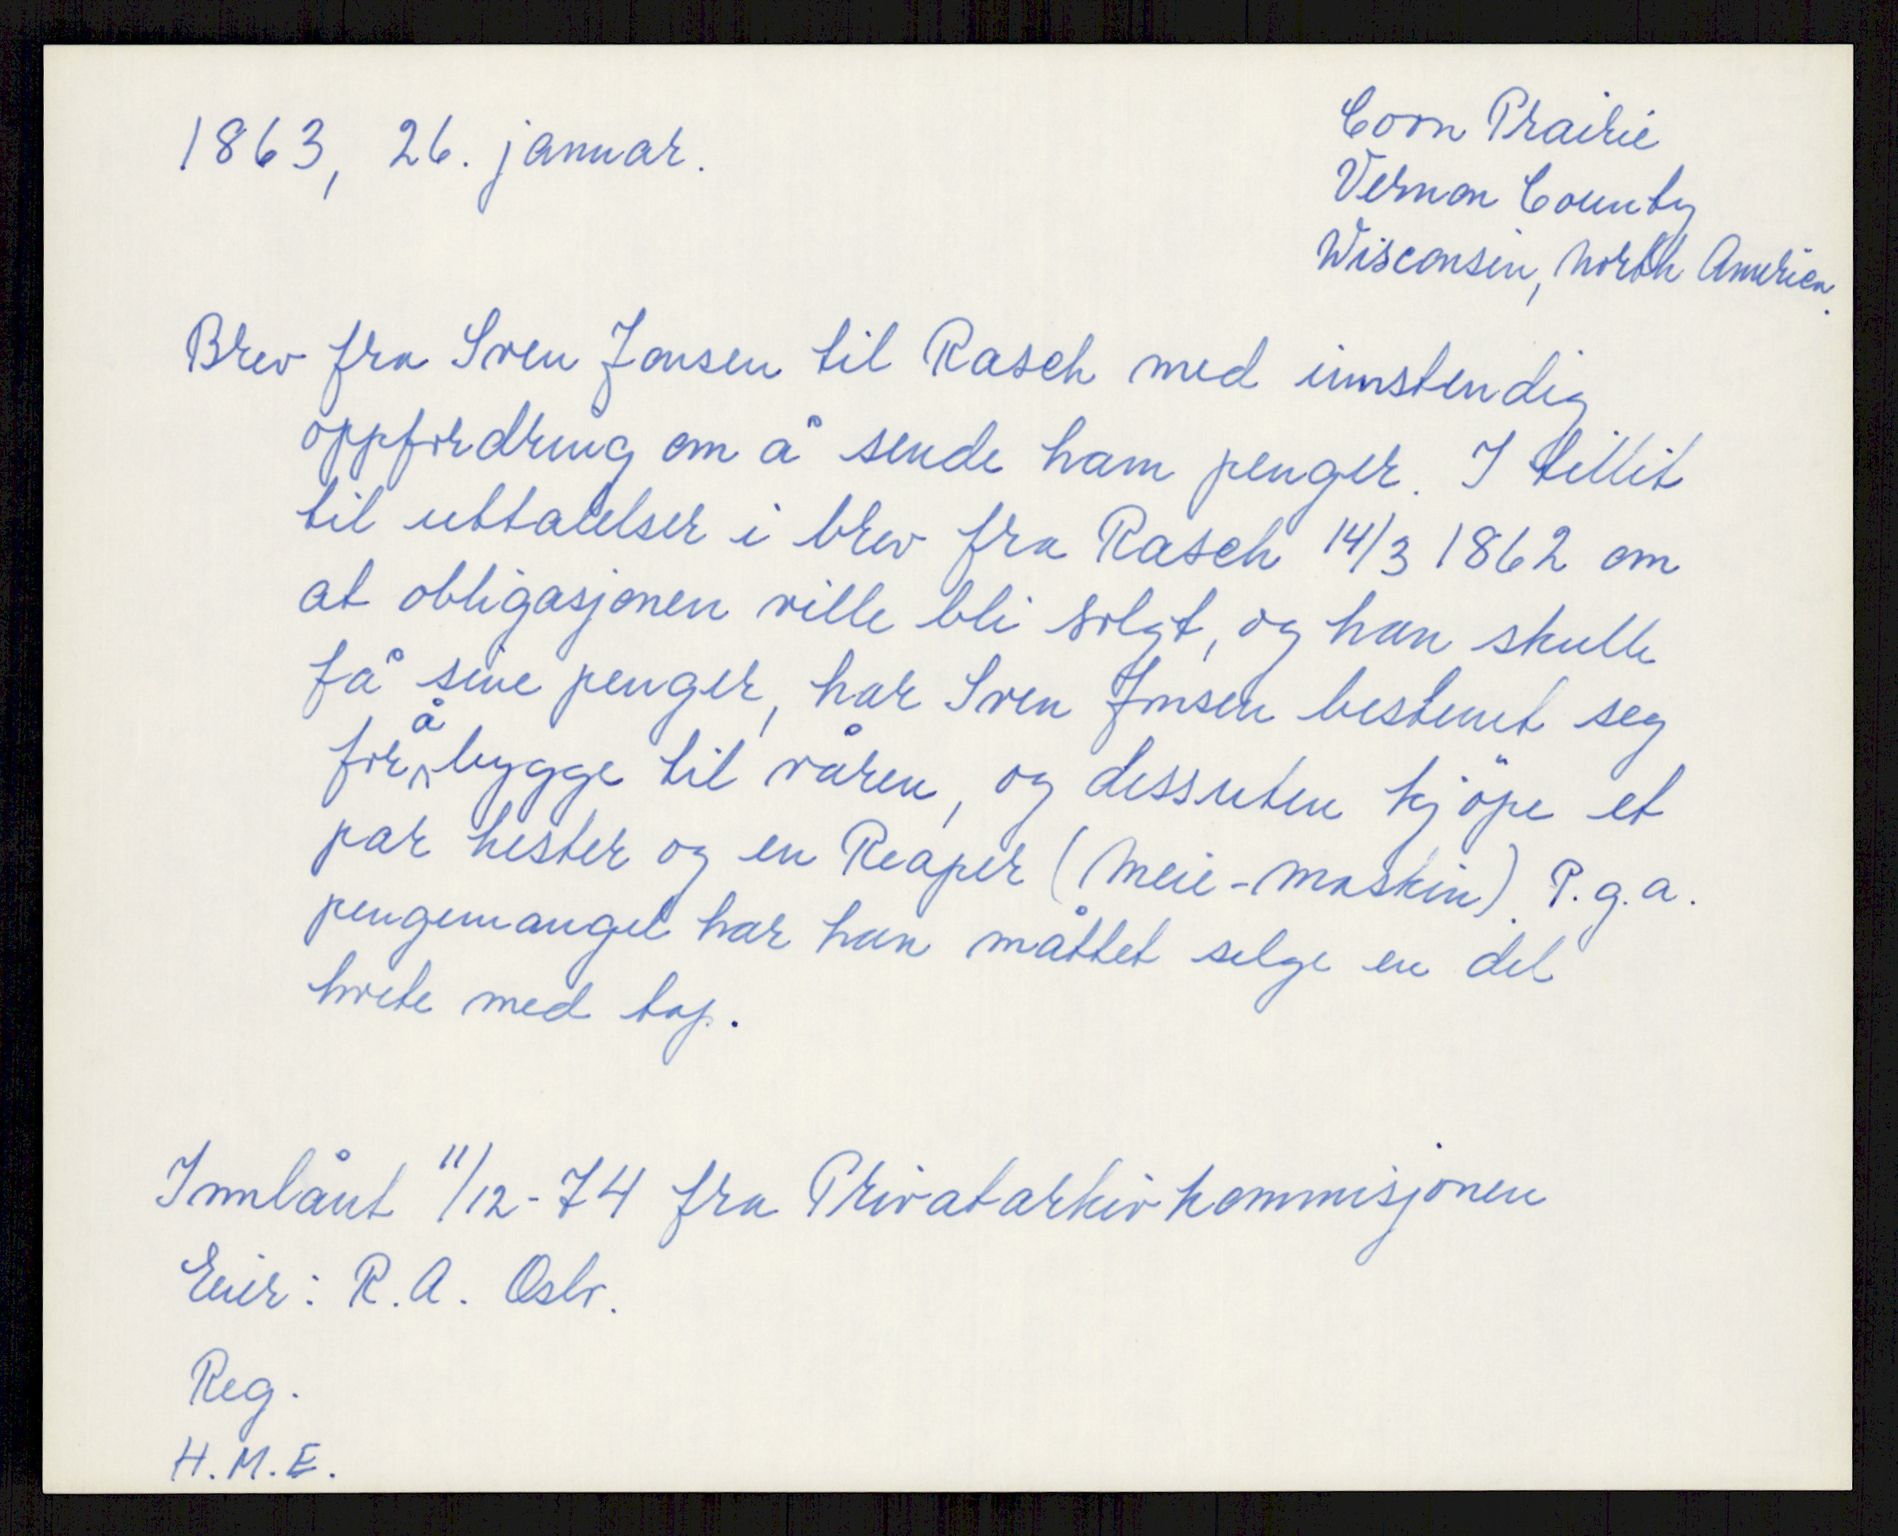 1863, 26. januar.
Coon Prairie
Vernon County
Wisconsin, North America.
Brev fra Sven Jonsen til Rasch med innstendig
oppfordring om å sende ham penger. I tillit
til uttalelser i brev fra Rasch 14/3 1862 om
at obligasjonen ville bli solgt, og han skulle
få sine penger, har Sven Jonsen bestemt seg
for å bygge til våren, og dessuten kjöpe et
par hester og en Reaper (Meie-Maskin). P.g.a.
pengemangel har han måttet selge en del
hvete med tap.
Innlånt 11/12-74 fra Privatarkivkommisjonen
Eier: R.A. Oslo.
Reg.
H.M.E.